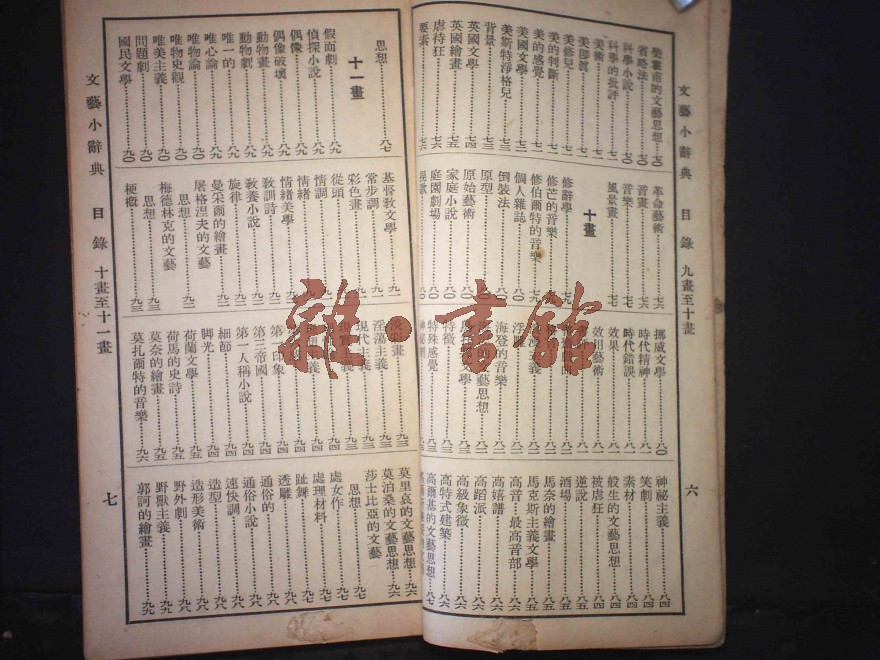 文藝小辭典 目錄 九畫至十畫
六
省略法………七〇
科學小說………七〇
科學的批評………七一
美術………七一
美修兒………七一
美的判斷………七一
美的感覺………七二
美國文學………七二
美斯特淨格兒………七三
背景………七三
英國文學………七四
英國繪畫………七五
虐待狂………七六
要素………七六
革命藝術………七六
音畫………七六
音樂………七七
風景畫………七七
十畫
修辭學………七九
修芒的音樂………七九
修伯爾特的音樂………七九
個人雜誌………七九
倒裝法………八〇
原型………八〇
原始藝術………八〇
家庭小說………八〇
庭園劇場………八〇
挪威文學………八〇
時代精神………八一
時代錯誤………八一
效果………八一
效用藝術………八一
海登的音樂………八二
特徵………八三
特殊感覺………八三
神祕主義………八四
笑劇………八四
素材………八四
般生的文藝思想………八四
被虐狂………八四
逆說………八五
酒場………八五
馬奈的繪畫………八五
馬克斯主義文學………八五
高音‧最高音部………八六
高嬉譜………八六
高蹈派………八六
高級象徵………八六
高特式建築………八六
高爾基的文藝思想………八七
文藝小辭典 目錄 十畫至十一畫
七
思想………八七
十一畫
假面劇………八九
偵探小說………八九
偶像………八九
偶像破壞………八九
動物畫………八九
動物劇………八九
唯一的………八九
唯心論………八九
唯物論………九〇
唯物史觀………九〇
唯美主義………九〇
問題劇………九〇
國民文學………九〇
基督教文學………九一
常步調………九一
彩色畫………九一
從頭………九一
情調………九一
情緒………九一
情緒美學………九一
教訓詩………九二
教養小說………九二
旋律………九二
曼采爾的繪畫………九二
屠格涅夫的文藝
思想………九二
梅德林克的文藝
思想………九三
梗概………九三
淡彩畫………九三
淫蕩主義………九三
現代主義………九三
第一印象………九四
第三帝國………九四
第一人稱小說………九四
細節………九四
脚光………九四
荷蘭文學………九四
荷馬的史詩………九五
莫奈的繪畫………九五
莫扎爾特的音樂………九六
莫里哀的文藝思想………九六
莫泊桑的文藝思想………九六
莎士比亞的文藝
思想………九七
處女作………九七
處理材料………九七
趾舞………九八
透雕………九八
通俗的………九八
通俗小說………九八
速快調………九八
造型………九八
造形美術………九八
野外劇………九八
野獸主義………九九
郭訶的繪畫………九九
雜‧書館